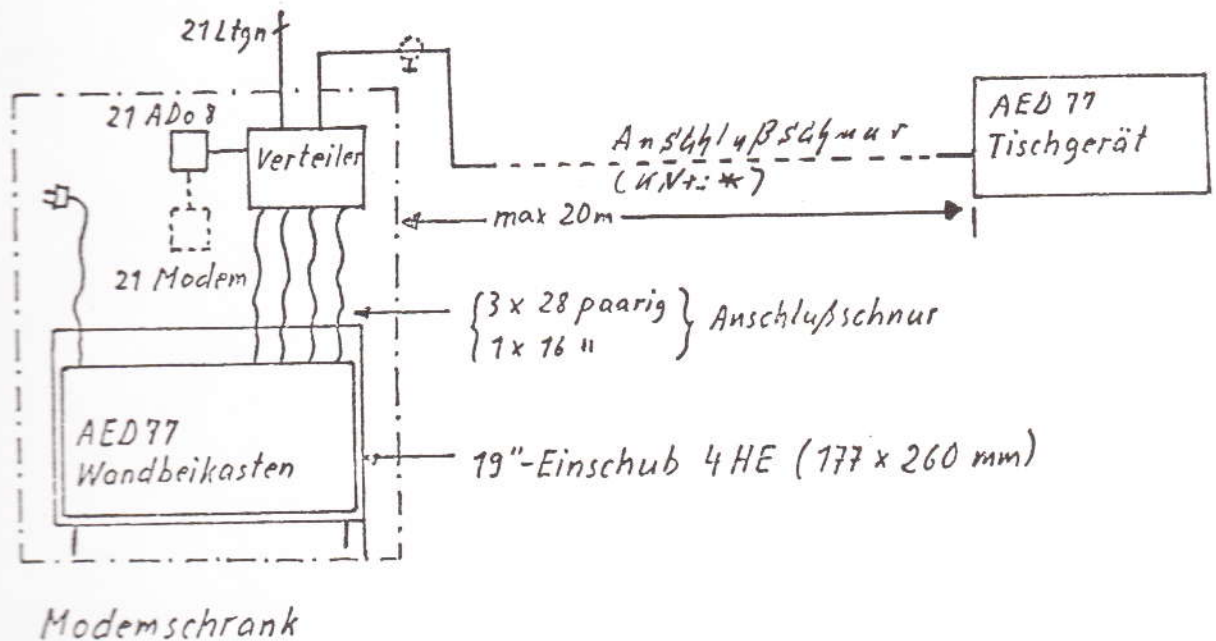 21 Ltgn
21 ADo 8
Verteiler
AED 77
Tischgerät
Anschlußschnur
(KNr.: *)
max 20m
21 Modem
3 x 28 paarig
1 x 16 "
Anschlußschnur
AED 77
Wandbeikasten
19"-Einschub 4 HE (177 x 260 mm)
Modemschrank